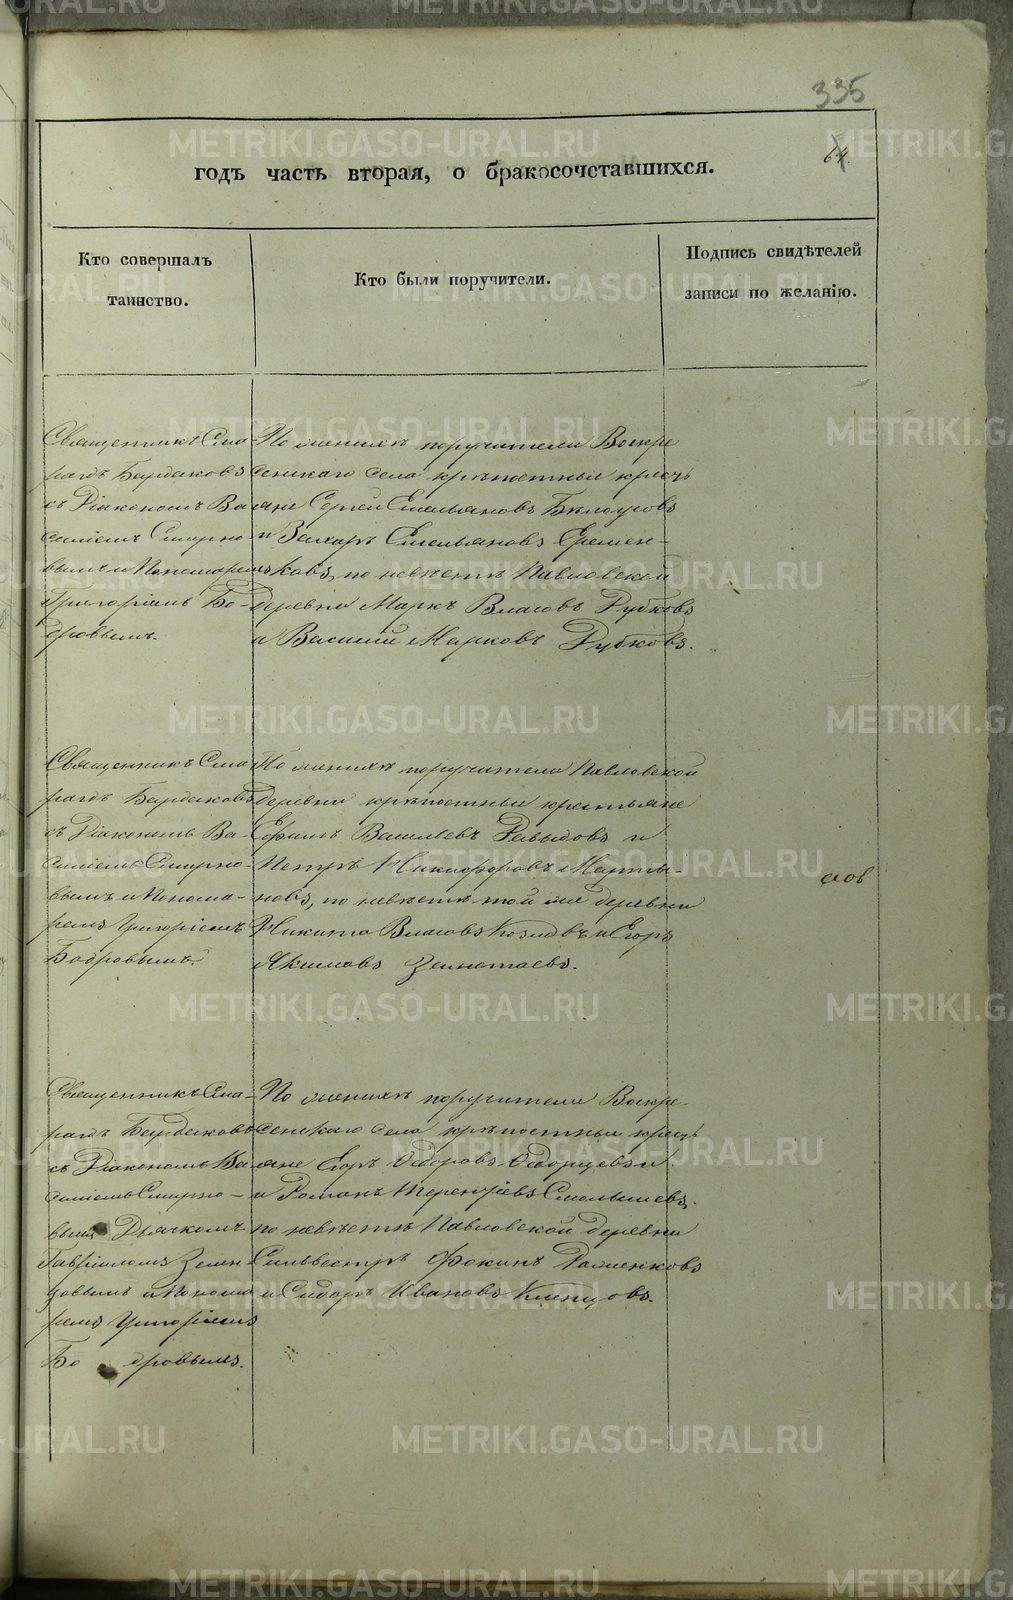 335
64.
годъ часть вторая, о бракосочетавшихся.
Кто совершалъ
таинство.
Кто были поручители.
Подпись свидѣтелей
записи по желанію.
Священникъ Сма-
рагдъ Бардаковъ
съ Діакономъ Ва-
силіемъ Смирно-
вымъ и Пономаремъ
Григоріемъ Бо-
дровымъ.
По женихѣ поручители Воскре
сенскаго села крѣпостные кресть
яне Сергей Емельяновъ Бѣлоусовъ
и Захаръ Емельяновъ Еремен-
ковъ, по невѣстѣ Павловской
деревни Маркъ Власовъ Рубковъ
и Василій Марковъ Рубковъ.
Священникъ Сма
рагдъ Бардаковъ
съ Діакономъ Ва-
силіемъ Смирно-
вымъ и Понома-
ремъ Григоріемъ
Бодровымъ.
По женихѣ поручители Павловской
деревни крѣпостные крестьяне
Ефимъ Васильевъ Давыдовъ и
Петръ Никифоровъ Марты-
новъ, по невѣстѣ той же деревни
Никита Власовъ Козловъ и Егоръ
Якимовъ
Священникъ Сма-
рагдъ Бардаковъ
съ Діакономъ Ва
силіемъ Смирно-
вымъ Дьячкомъ
Гавріиломъ
и Понома
ремъ Григоріемъ
Бодровымъ.
По женихѣ поручители Воскре-
сенскаго села крѣпостные кресть
яне Егоръ Ѳедоровъ и
и Романъ Терентьевъ
по невѣстѣ Павловской деревни
Сильвестръ Фокинъ
и Сидоръ Ивановъ
METRIKI.GASO-URAL.RU